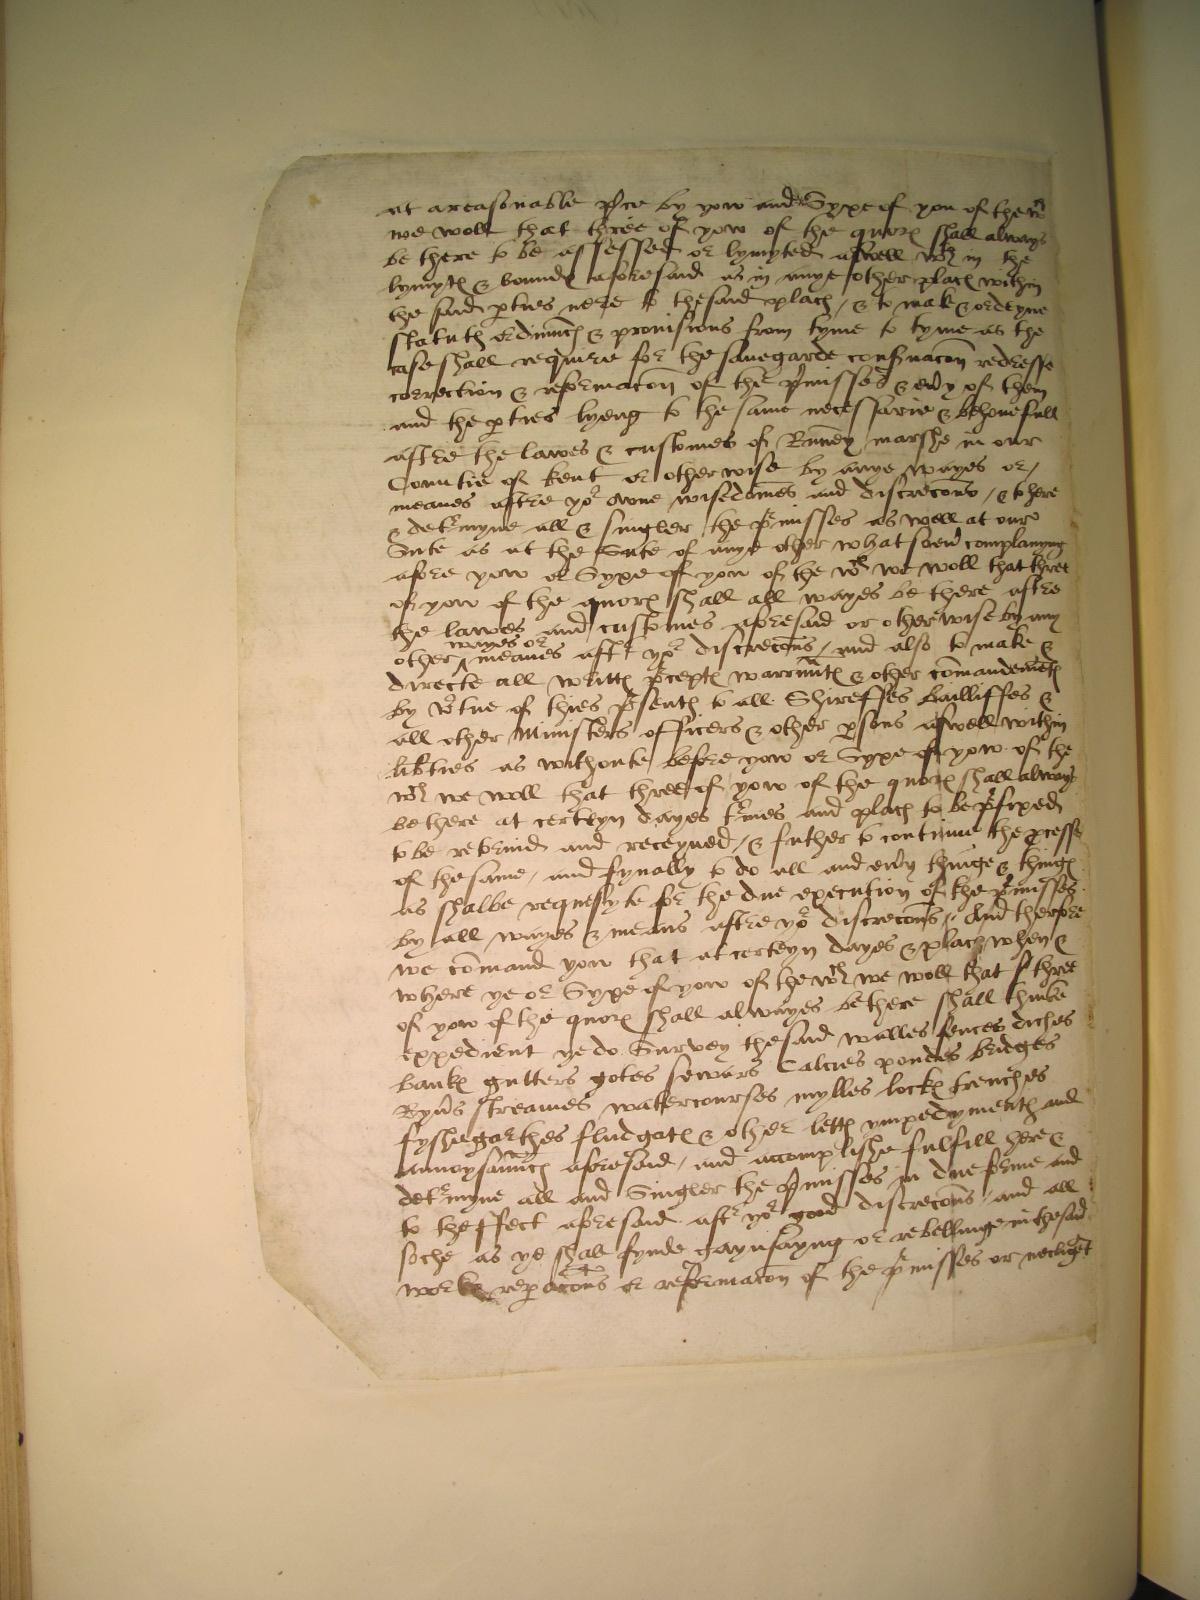 at a reasonable p'ce by yow and Syxe of yow of the wch
we woll that three of yow of the quorx shall always
be there to be assessed or lymyted aswell wtin in the
lymytx & boundx aforesaid as in anye other placx within
the said p'ties nere to thesaid placx / & to mak & ordeyne
statutx ordinnncx & provisions from tyme to tyme as the
case shall requiere for the savegarde cons'vacon redresse
correction & reformacon of the p'misses & ev'y of them
and the p'ties lyeng to the same necessarie & behovefull
aftre the lawes & customes of Rumney marshe in our
Countie of kent or otherwise by anye wayes or /
meanes aftre yor owne wisedomes and discrecons / & to here
& det'myne all & singler the p'misses as well at our
Sute as at the Sute of anye other what soev' complanyng
afore yow or Syxe of yow of the wch we woll that three
of yow of the quorx shall all wayes be there aftre
the lawes and customes aforesaid or otherwise by any
wayes or
other ^ meanes aft' yor discrecons / and also to make &
directe all writtx p'ceptx warrnntx & other comandementx
by v'tue of thies p'sentx to all Shireffes bailliffes &
all other Ministers officers & other p'sons aswell within
lib'ties as withoute before yow or Syxe of yow of the
wch we woll that three of yow of the quorx shall always
be there at certeyn dayes t'mes and placx to be p'fixed
to be retornid and receyued / & futher to continue the p'cesse
of the same / and fynally to do all and ev'y thinge & thingx
as shalbe requesyte for the due execution of the p'misses
by all wayes & means aftre yor discrecons / And therfore
we comand yow that at certeyn dayes & placx when &
where ye or Syxe of yow of the wch we woll that three
of yow of the quorx shall alwayes be there shall thinke
expedient ye do Survey the said walles fences diches
bankx gutters gotes sewars Calcies pondes bridges
Ryv's streames watercourses mylles lockx trenches
fyshegarthes fludgatx & other lettx ympedymentx and
annoysanncx aforesaid / and accomplishe fulfill here &
det'myne all and Singler the p'misses in due forme and
to theffect aforesaid aft' yor good discrecons / and all
soche as ye shall fynde gaynsayng or rebellinge in thesaid
workx rep'acons or reformacon of the p'misses or necligent